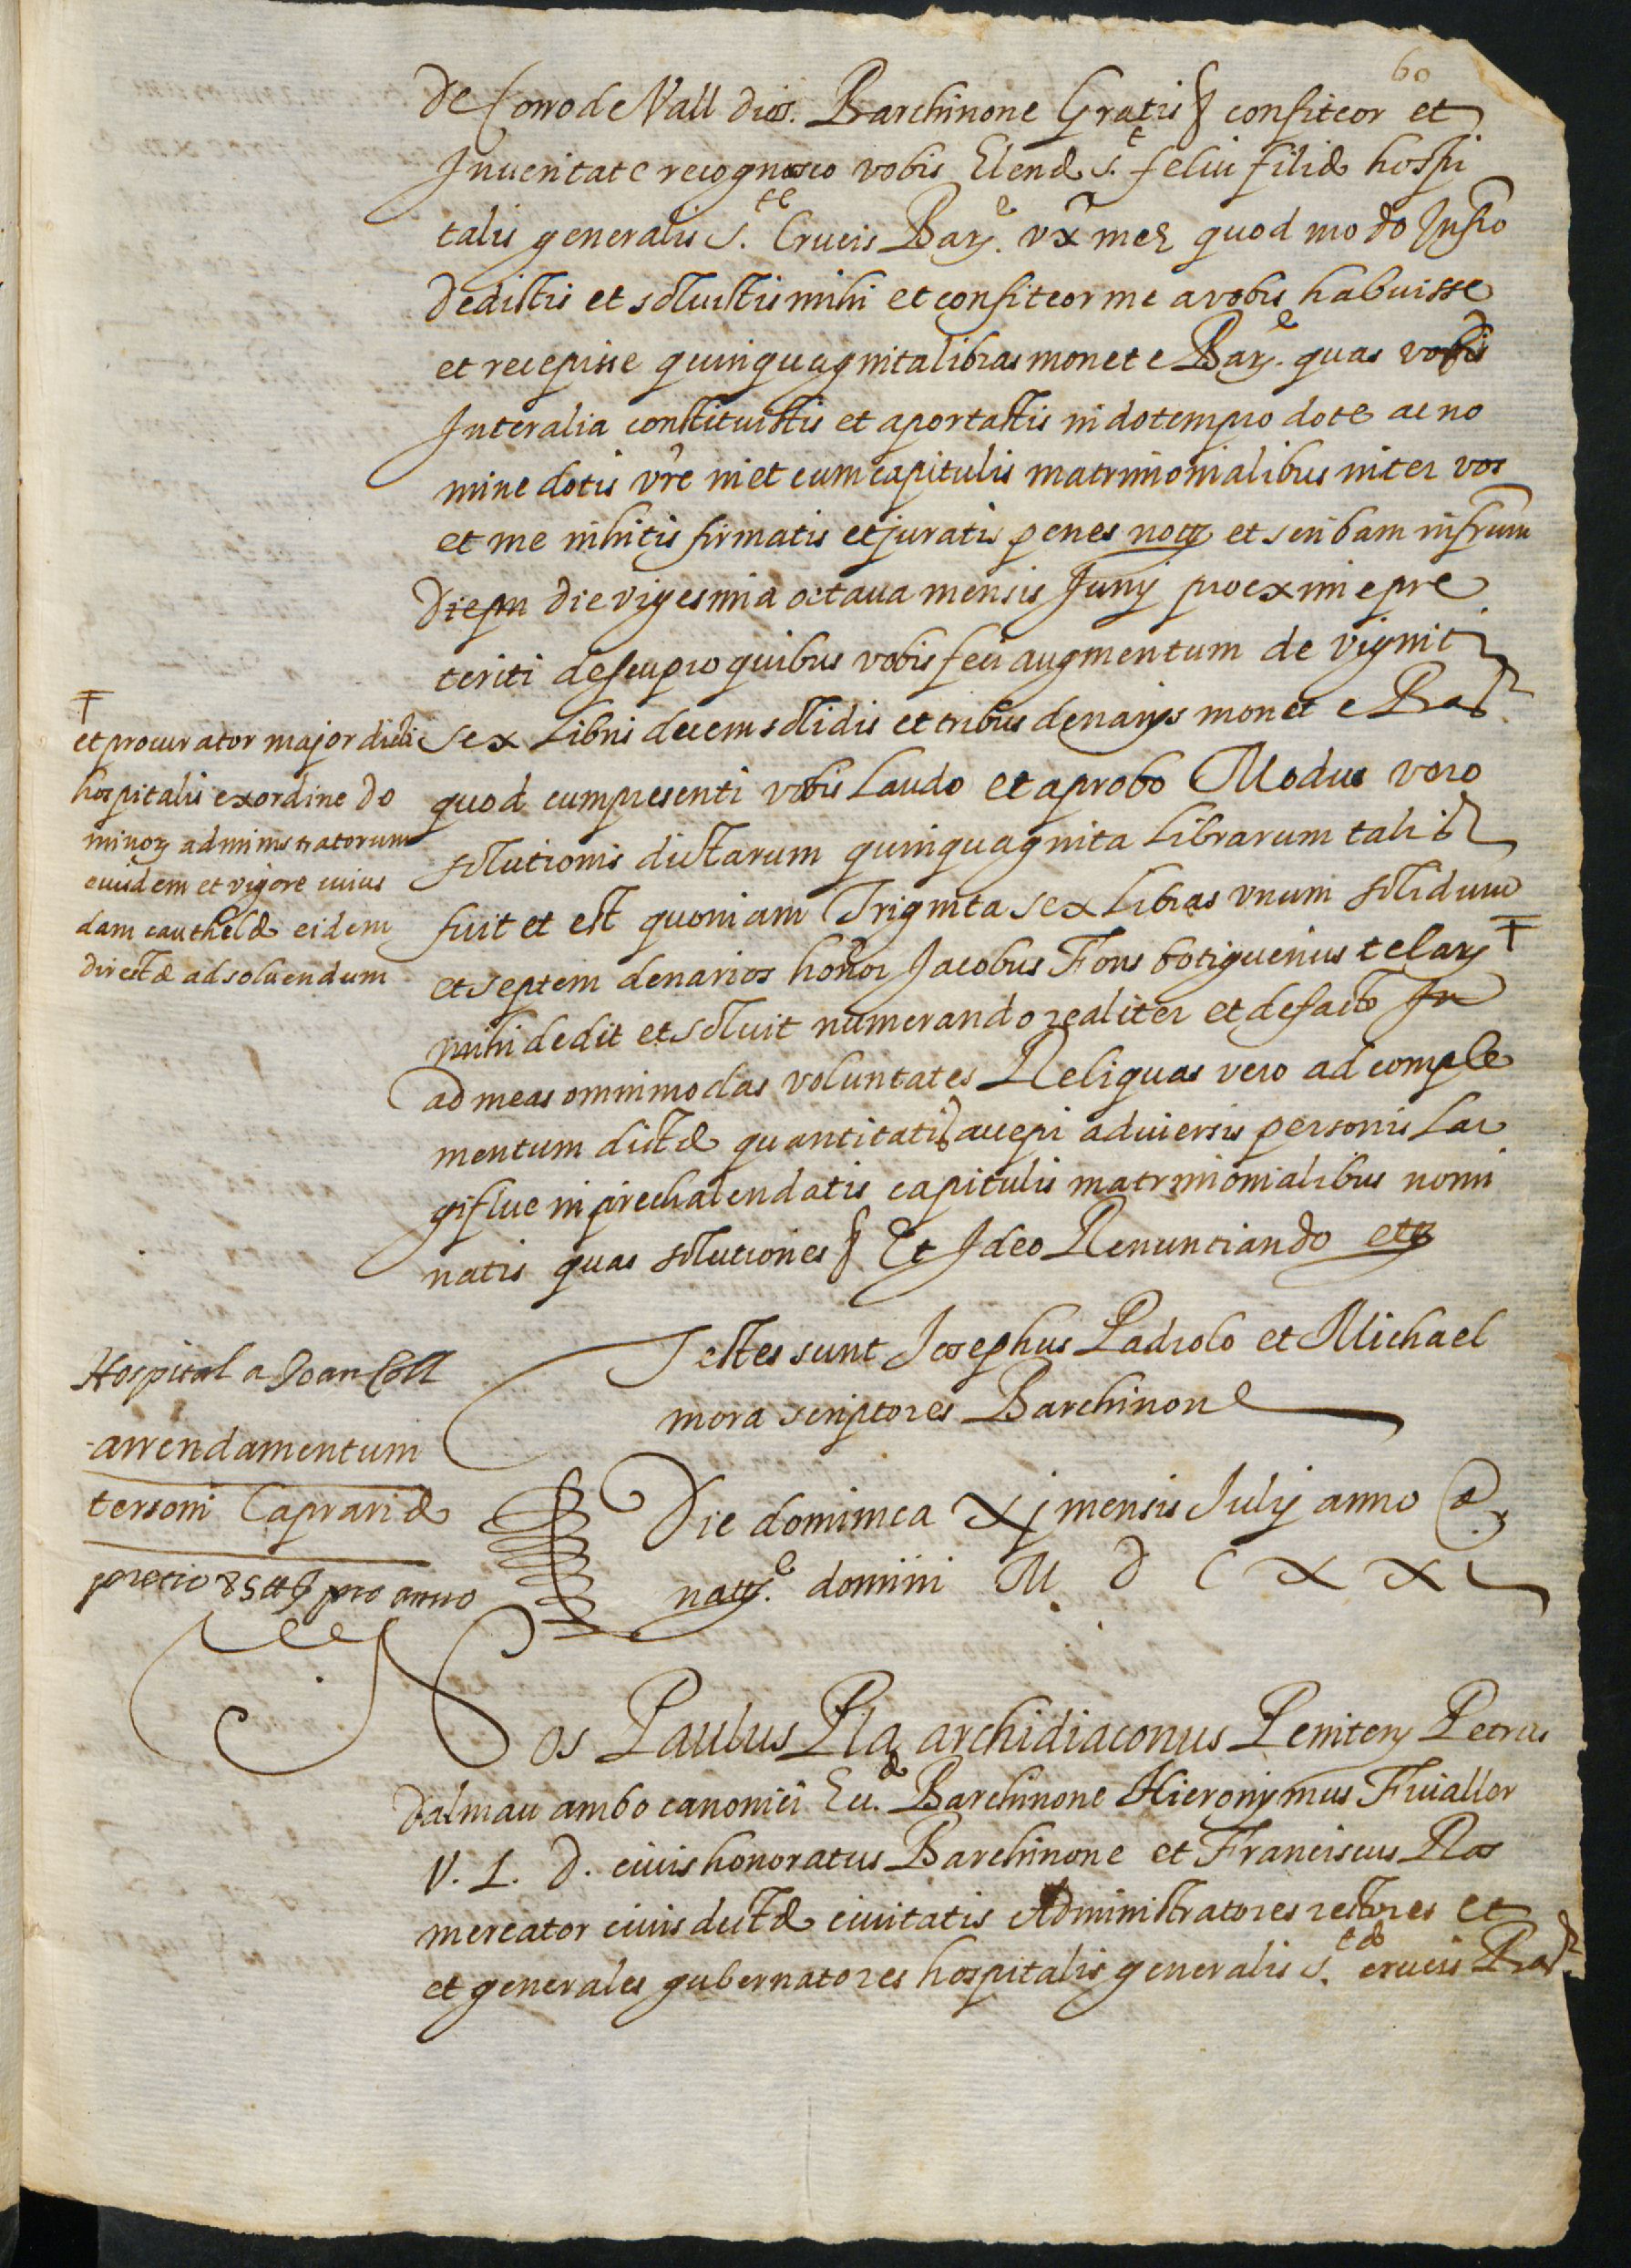 60
de Corrode Vall dios. Barchinone Gratis & confiteor et
Inueritate recognosco vobis Elenæ S.t feliu filiæ hospi
talis generalis S.te Crucis Barq.e vx meę quod modo Infro
dedistis et soluistis mihi et confiteor me avobis habuisse
et recepisse quinquaginta libras monete Barq.e quas vobis
Interalia constituistis et aportastis in dotem pro dote ac no
mine dotis vre in et cum capitulis matrimonialibus inter vos
et me initis firmatis et juratis penes notq et scribam infrum
diepn die vigesima octaua mensis Junij proexime pre
teriti deseu pro quibus vobis feci augmentum de viginti
sex Libris decem solidis et tribus denarijs monete Bar
quod cum presenti vobis Laudo et aprobo Modus vero
solutionis dictarum quinquaginta Librarum talis
fuit et est quoniam Triginta sex Libras vnum solidum
et septem denarios honor Jacobus Fons botiguerius telarq ╤
mihi dedit et soluit numerando realiter et defacto In
ad meas omnimodas voluntates Reliquas vero ad comple
mentum dictæ quantitatis accepi adviersis personis Lar
gislue in prechalendatis capitulis matrimonialibus nomi
natis quas solutiones & Et Ideo Renuntiando etq
Testes sunt Josephus Padrolo et Michael
mora scriptores Barchinone
╤
et procurator major dicti
hospitalis exordine do
minorq administratorum
eiusdem et vigore cuius
dam cauthelæ eidem
directæ ad soluendum
Hospital a Joan Coll
arrendamentum
tersoni Caprariæ
pretio 85 ₶ pro anno
Die dominica xj mensis Julij anno a
natq.e domini M D C X X
Nos Paulus Pla archidiaconus Penitenq Petrus
Dalmau ambo canonici Ecc.æ Barchinone Hieronymus Fiuallor
V. I. D. ciuis honoratus Barchinone et Franciscus Ros
mercator ciuis dictæ ciuitatis Administratores rectores et
et generales gubernatores hospitalis generalis S.tæ crucis Bar